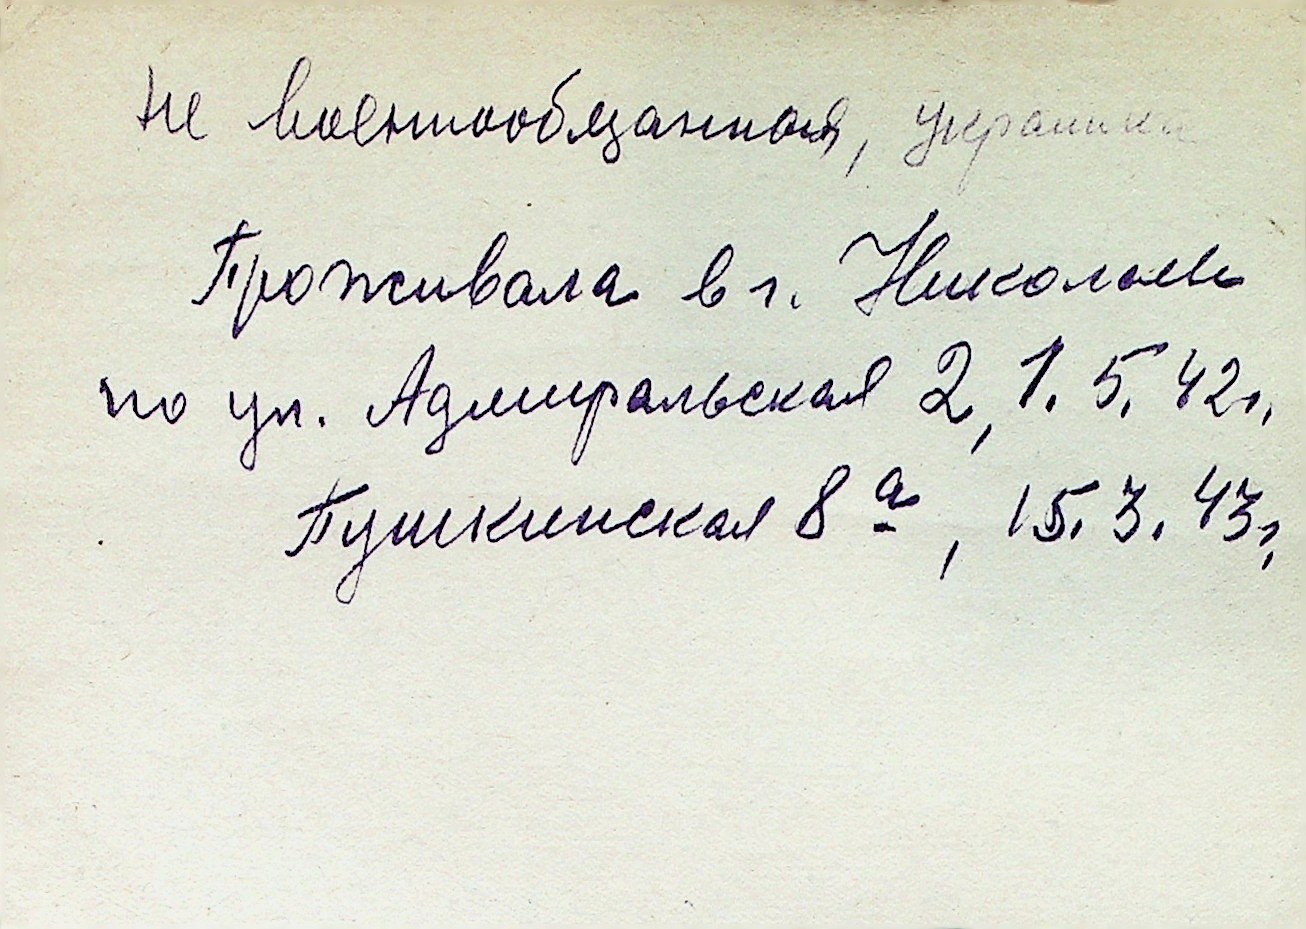 не военнообязанная, украинка
Проживала в г. Николаеве
по ул. Адмиральская 2, 1. 5. 42г.,
Пушкинская 8 а, 15. 3. 43г,